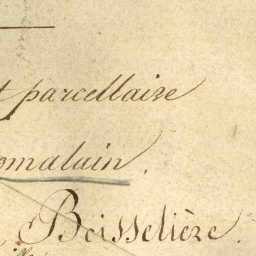 t parcellaire
omalain.
Beisselière.